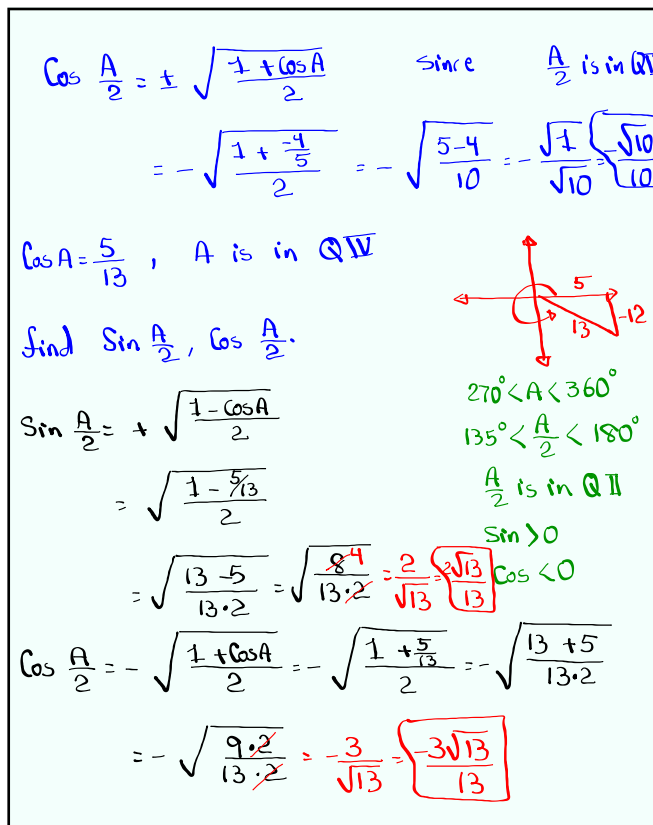 Cos A/2 = ± √((1 + cosA)/2) since A/2 is in Q
= - √((1 + -4/5)/2) = - √((5-4)/10) = - √1/√10 = -√10/10
Cos A = 5/13 , A is in QIV
find Sin A/2 , Cos A/2.
5
13
-12
270° < A < 360°
135° < A/2 < 180°
A/2 is in QII
Sin > 0
Cos < 0
Sin A/2 = + √((1 - cosA)/2)
= √((1 - 5/13)/2)
= √((13 - 5)/(13·2)) = √(8 4/(13·2)) = 2/√13 = 2√13/13
Cos A/2 = - √((1 + CosA)/2) = - √((1 + 5/13)/2) = - √((13 + 5)/(13·2))
= - √((9·2)/(13·2)) = -3/√13 = -3√13/13